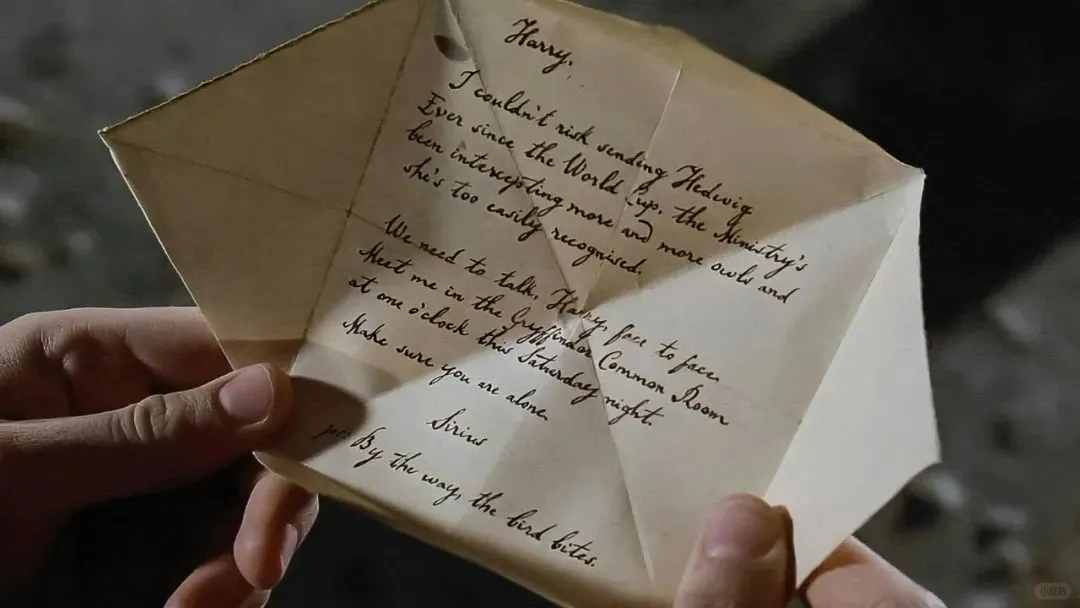 Harry,
I couldn't risk sending Hedwig
Ever since the World Cup, the Ministry's
been intercepting more and more owls and
she's too easily recognised.
We need to talk, Harry, face to face.
Meet me in the Gryffindor Common Room
at one o'clock this Saturday night.
Make sure you are alone.
Sirius
By the way, the bird bites.